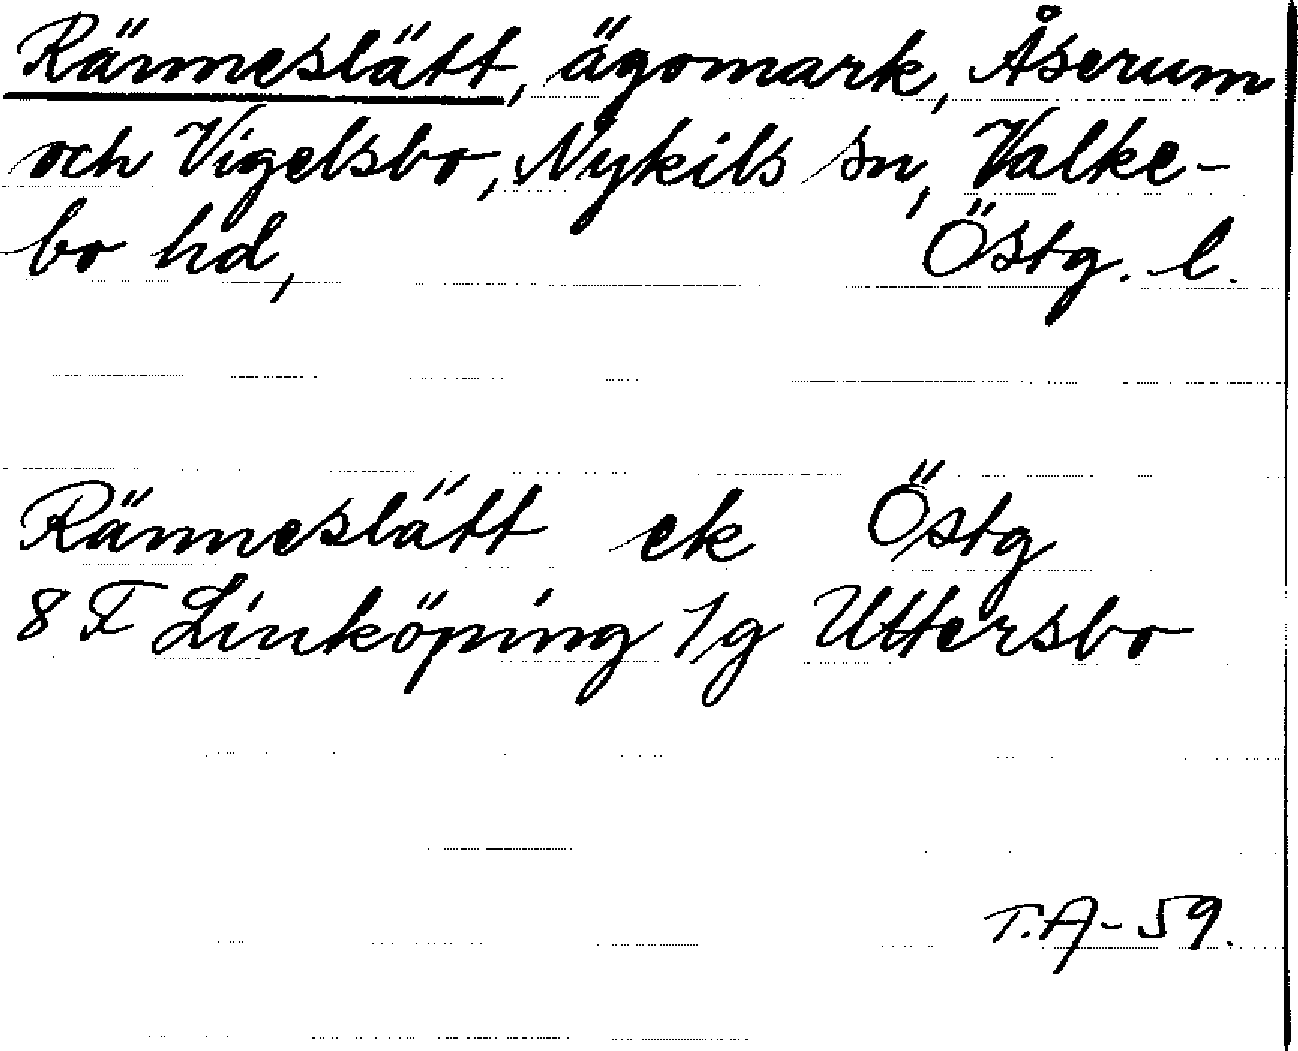 Ränneslätt, ägomark, Åserum
och Vigelsbo, Nykils sn, Valke-
bo hd, Östg. l.
Ränneslätt ek Östg
8 F Linköping 1g Uttersbo
T.A-59.